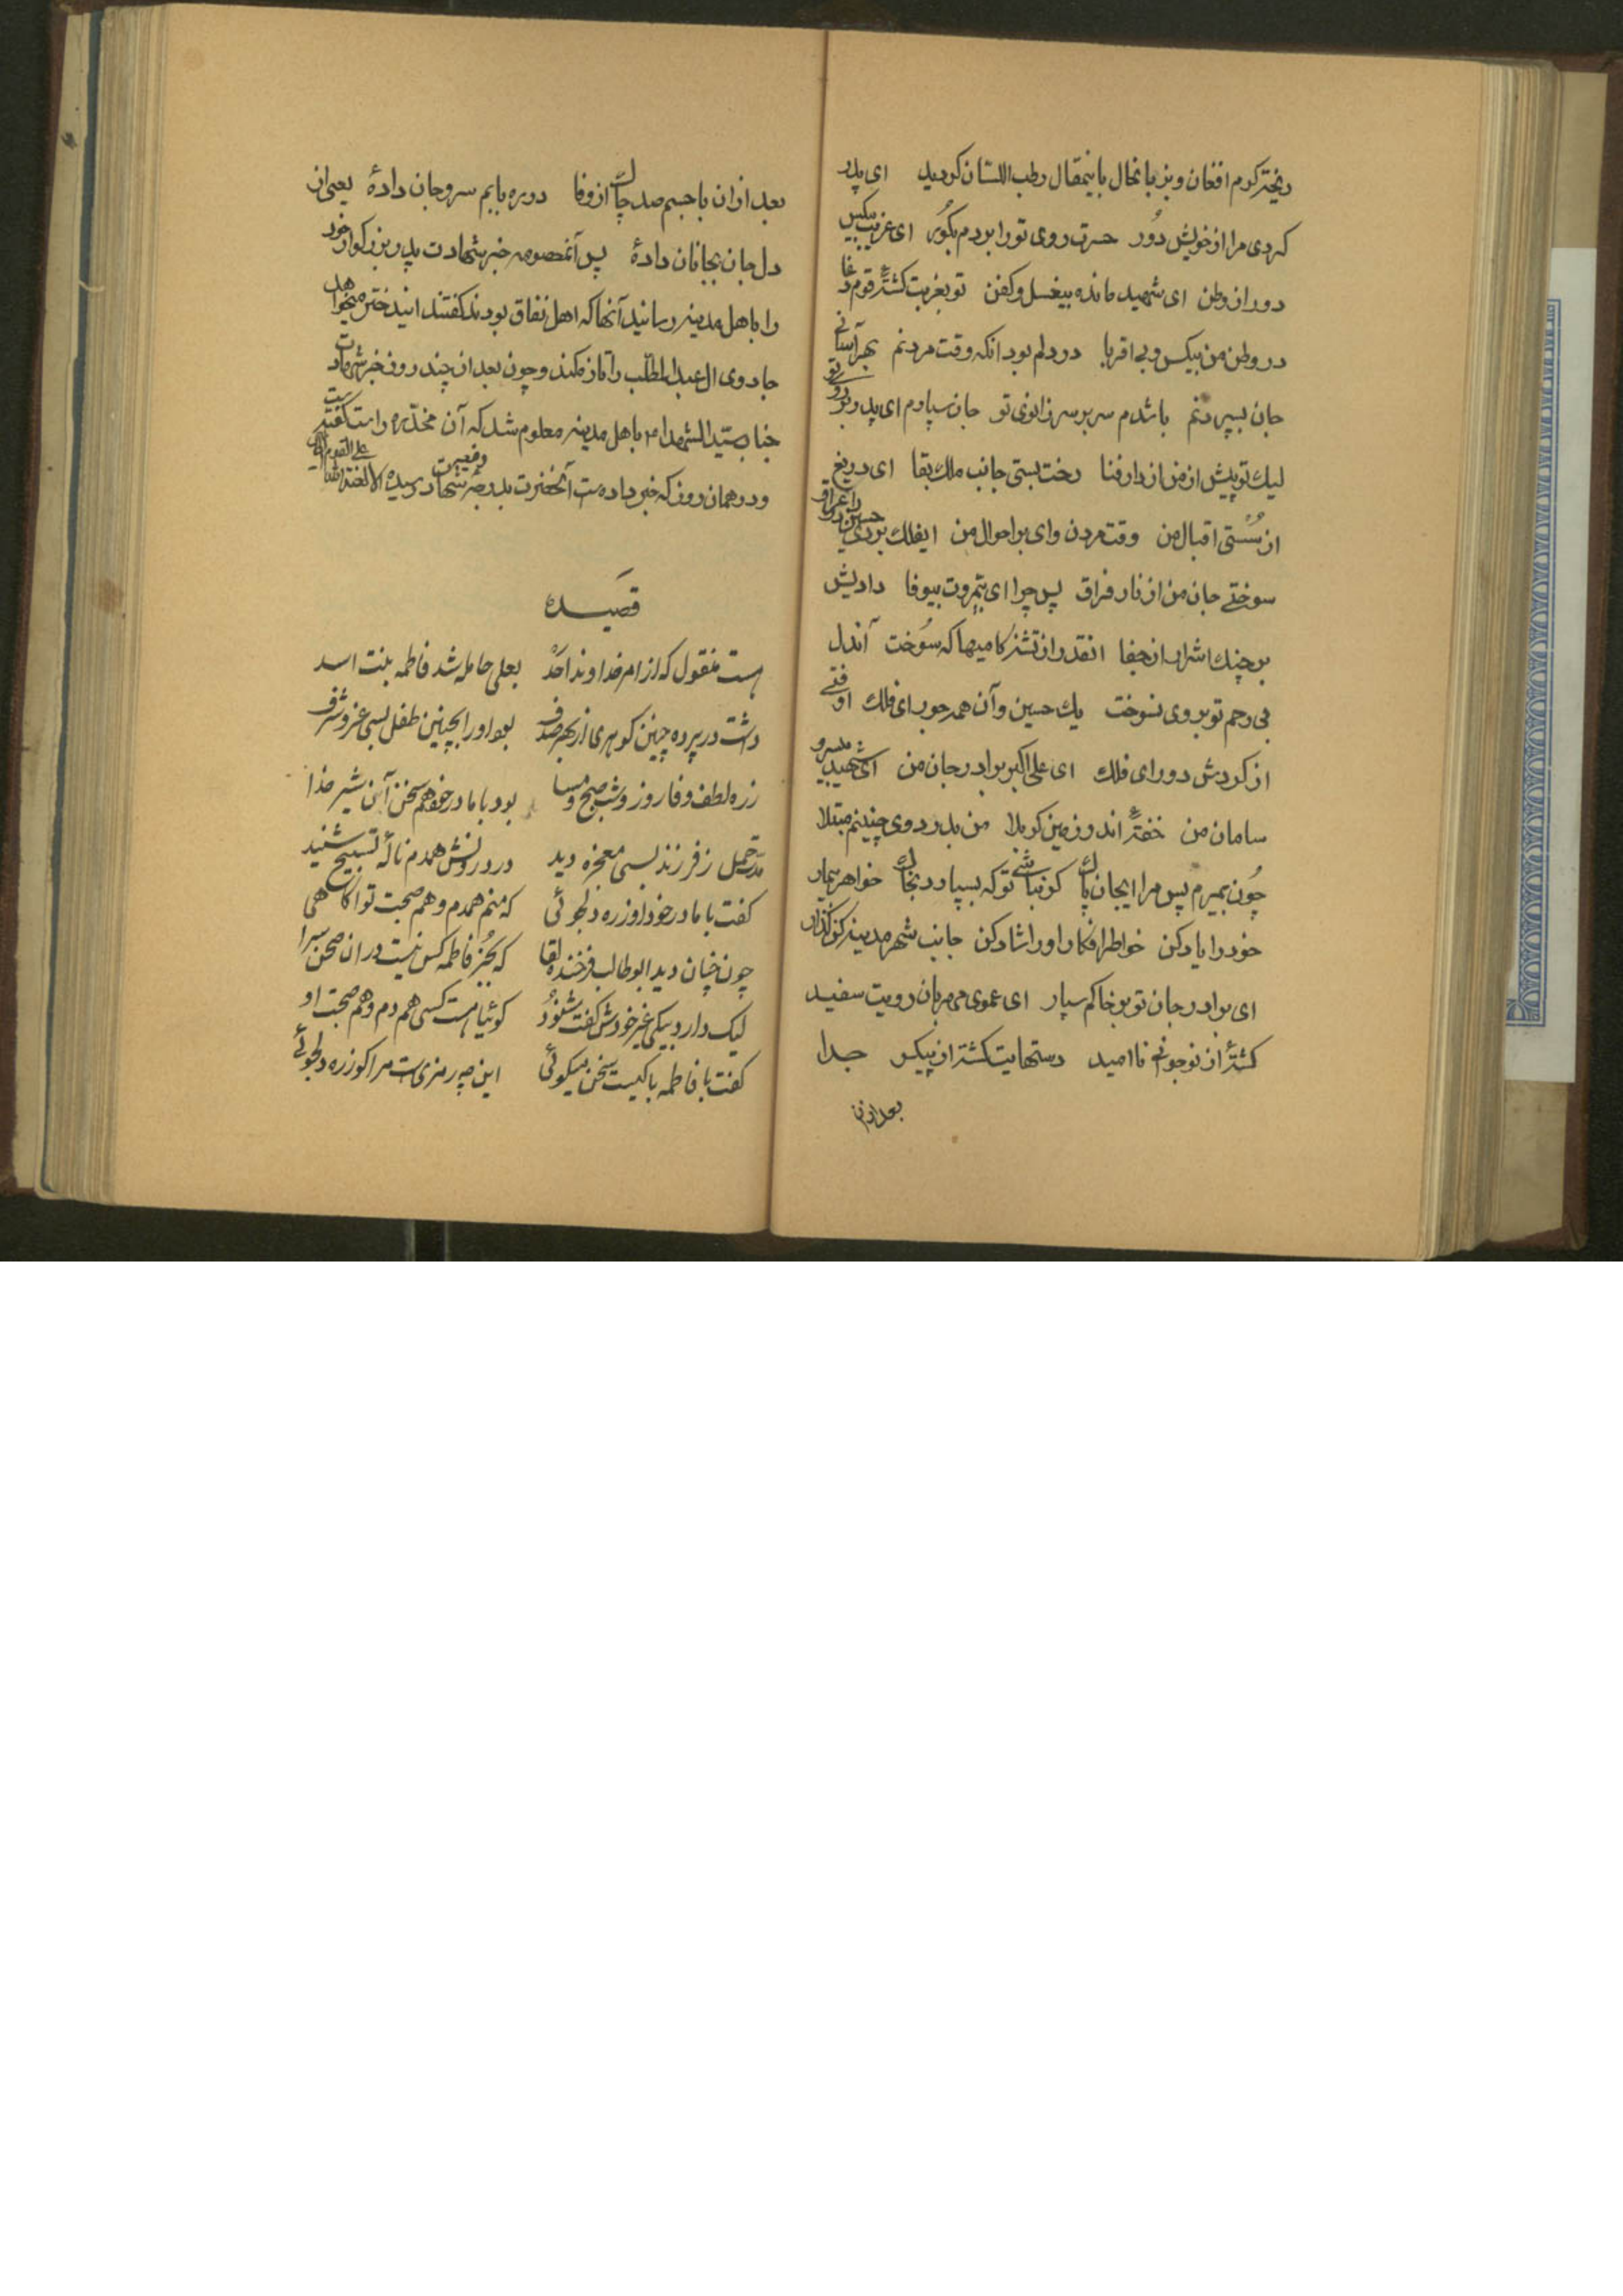 دختر کرم افغان و بزبانحال باینمقال رطب اللسان کردید ای پدر
که ردی مرا از خویش دُور حسرت روی تو را بردم بکُور ای غریب بیکس
دور از وطن ای شهید مانده بیغسل و کفن تو بغربت کشتهٔ قوم دغا
در وطن من بیکس و بی اقربا در دلم بود انکه وقت مردنم بهر آسانی
جان سپردنم باشدم سر بر سر زانوی تو جان سپارم ای پدر بر روی تو
لیک تو پیش از من از دار فنا رخت بستی جانب ملک بقا ای دریغ
از سُستی اقبال من وقت مردن وای بر احوال من ایفلک بردی حسین را در عراق
سوختی جان من از نار فراق پس چرا ای بیمروت بیوفا دادیش
بر چنک اشرار از جفا انقدر از تشنه کامیها که سُوخت آندل
بی رحم تو بر وی نسوخت یک حسین و آن همه جور ای فلک اوفتی
از کردش دور ای فلک ای علی اکبر برادر جان من ای شهید بیسر و
سامان من خفتهٔ اندر زمین کربلا من بدرد وی چنینم مبتلا
چُون بمیرم پس مرا ایجان پاک کو نباشی تو که بسپارد بخاک خواهر بیمار
خود را یاد کن خواطر افکار او را شاد کن جانب شهر مدینه کن گذار
ای برادر جان تو بر خاکم سپار ای عموی مهربان رویت سفید
کشتهٔ از نوجوانی نا امید دستهایت کشته از پیکر جدا
بعد ازان
بعد از ان با جسم صد چاک از وفا در ره بابم سر و جان دادهٔ یعنی از
دل جان بجانان دادهٔ پس آنمعصومه خبر شهادت پدر بزرکوار خود
را باهل مدینه رسانید آنها که اهل نفاق بودند کفتند ایندختر میخواهد
جادوی ال عبد المطلب را تازه کند و چون بعد از چند روز خبر شهادت
جناب سید الشهدا باهل مدینه معلوم شد که آن مخدّره راست کفته است
و در همان روز که خبر داده است آنحضرت بدرجه رفیعه شهادت رسیده الا لعنة الله علی القوم الظالمین
قصیده
هست منقول که از امر خداوند احَدْ بعلی حامله شد فاطمه بنت اسد
داشت در پرده چنین کوهری از بهر صدف بود او را بچنین طفل بسی عز و شرف
زره لطف و فا روز و شب و صبح و مسا بود با مادر خود هم سخن آن شیر خدا
مدّت حمل ز فرزند بسی معجزه دید در درونش همه دم نالهٔ تسبیح شنید
کفت با مادر خود او زره دلجوئی که منم همدم و هم صحبت تو اکاهی
چون چنان دید ابوطالب فرخنده لقا که بجُز فاطمه کس نیست در ان صحن سرا
لیک دارد بیکی غیر خودش کفت شنوُد کوئیا هست کسی هم دم و هم صحبت او
کفت با فاطمه با کیست سخن میکوئی این چه رمزی است مرا کو زره دلجوئی